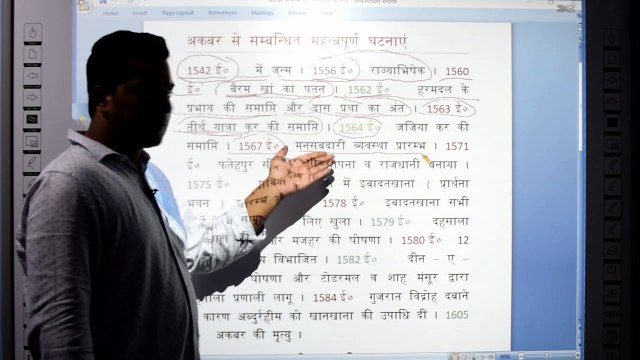 Microsoft Word
Page Layout References Mailings Review View
अकबर से सम्बन्धित महत्वपूर्ण घटनाएं
1542 ई० में जन्म । 1556 ई० राज्याभिषेक । 1560
ई० ( बैरम खां का पतन ) 1562 ई० हरमदल के
प्रभाव की समाप्ति और दास प्रथा का अंत । 1563 ई०
तीर्थ यात्रा कर की समाप्ति । 1564 ई० जजिया कर की
समाप्ति । 1567 ई० मनसबदारी व्यवस्था प्रारम्भ । 1571
ई० फतेहपुर व राजधानी बनाया ।
1575 ई० में इबादतखाना ( प्रार्थना
भवन ) 1578 ई० इबादतखाना सभी
लिए खुला । 1579 ई० दहसाला
और मजहर की घोषणा । 1580 ई० 12
विभाजित । 1582 ई० दीन - ए -
घोषणा और टोडरमल व शाह मंसूर द्वारा
प्रणाली लागू । 1584 ई० गुजरात विद्रोह दबाने
कारण अब्दुर्रहीम को खानखाना की उपाधि दी । 1605
अकबर की मृत्यु ।